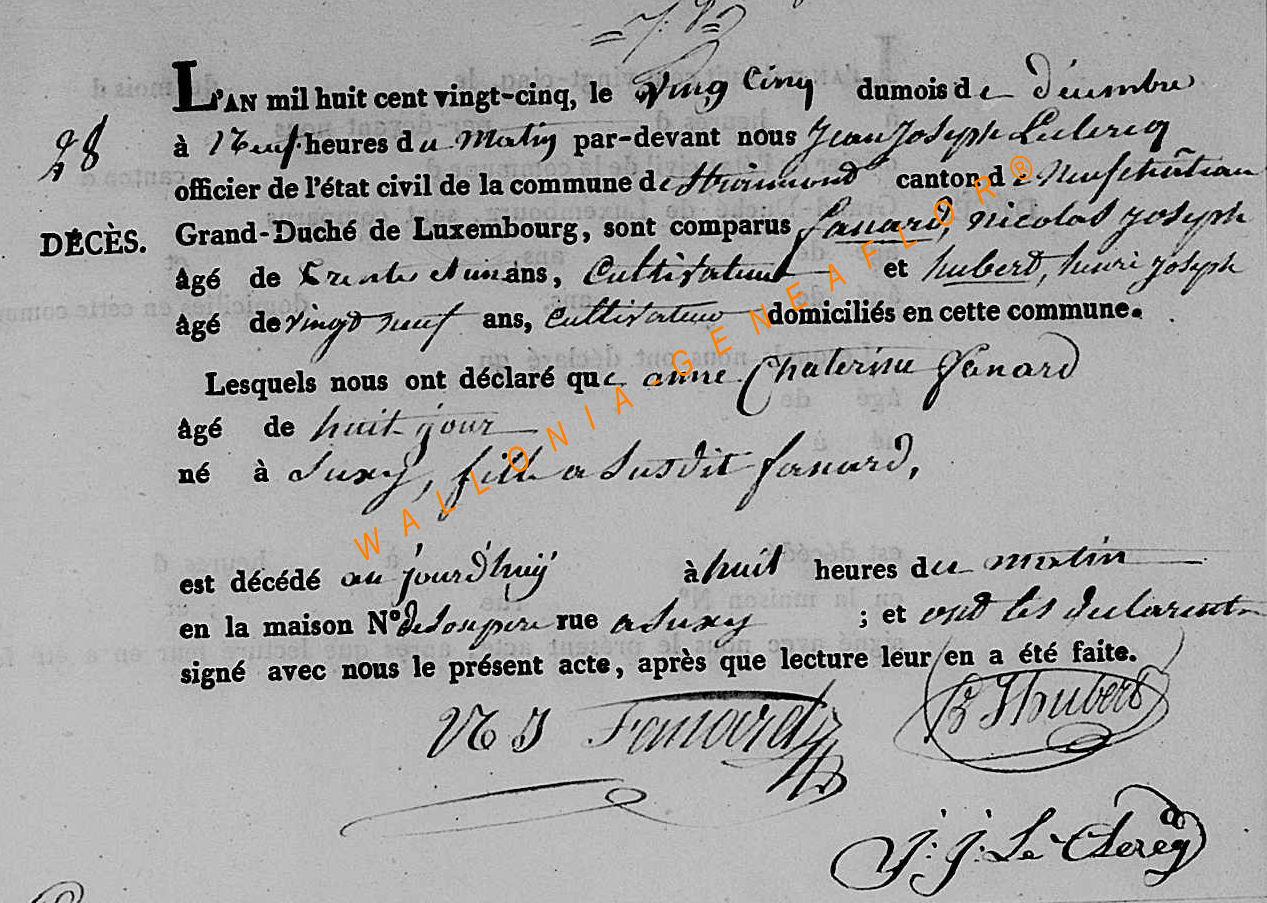 L'AN mil huit cent vingt-cinq, le Vingt Cinq du mois de décembre
28
à Neuf heures du Matin par-devant nous Jean Joseph Leclercq
officier de l'état civil de la commune de Straimond canton de Neufchâteau
DÉCÈS.
Grand-Duché de Luxembourg, sont comparus fanard, nicolas joseph
âgé de trente ans, Cultivateur et hubert, henri joseph
âgé de vingt neuf ans, Cultivateur domiciliés en cette commune.
Lesquels nous ont déclaré que anne Chaterine fanard
âgé de huit jour
né à Suxy, fille a Susdit fanard,
est décédé au jourd'huy à huit heures du matin
en la maison N° de son pere rue a Suxy ; et ont les declarent
signé avec nous le présent acte, après que lecture leur en a été faite.
N J Fanard
hubert
J. J. Le Clercq
WALLONIA GENEAFLOR®